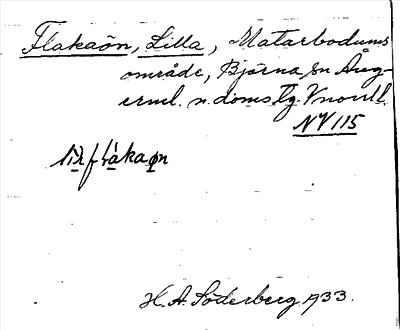 Flakaön, Lilla, Matarbodums
område, Björna sn Ång-
erml. n. doms tg. Vnorrl.
NV 115
H. A. Söderberg 1933.